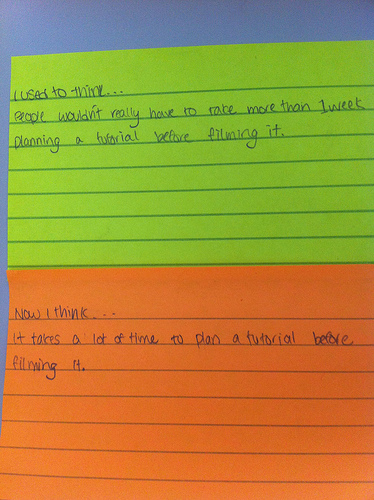 I used to think...
People wouldn't really have to take more than 1 week
planning a tutorial before filming it.
Now I think...
It takes a lot of time to plan a tutorial before
filming it.